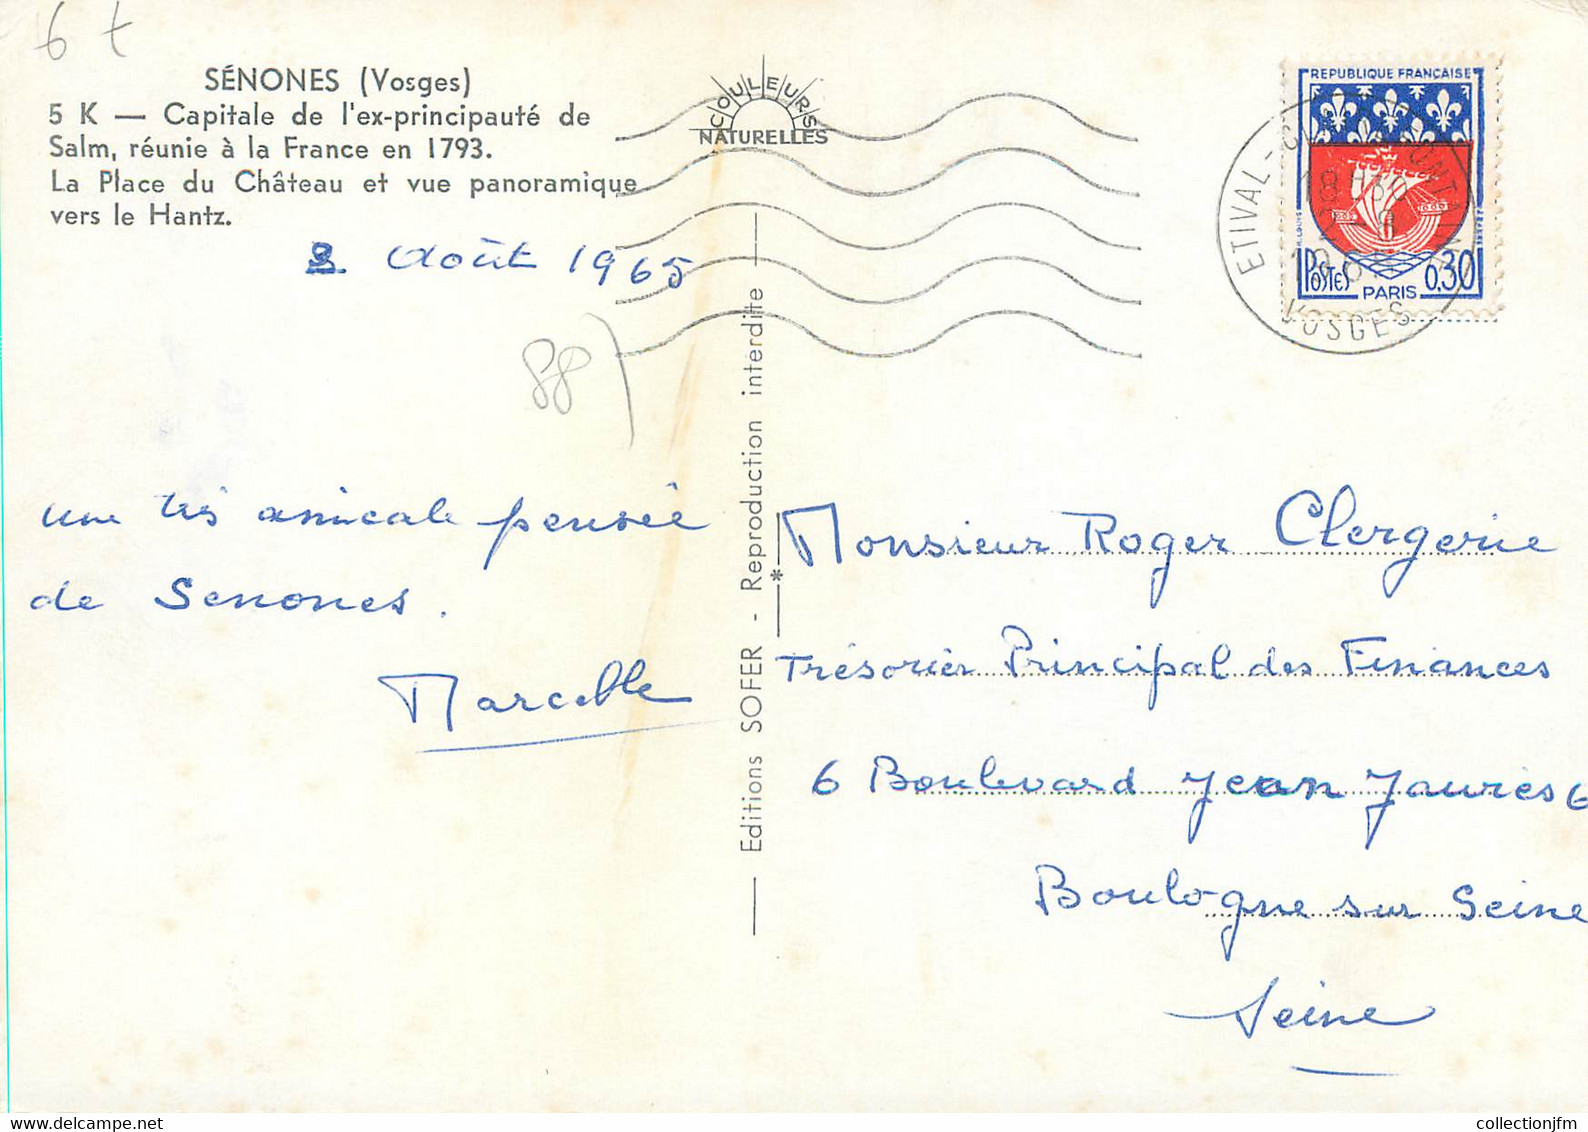 6 t
SÉNONES (Vosges)
5 K — Capitale de l'ex-principauté de
Salm, réunie à la France en 1793.
La Place du Château et vue panoramique
vers le Hantz.
Août 1965
88)
une très amicale pensée
de Senones.
Marcelle
COULEURS
NATURELLES
Editions SOFER - Reproduction interdite
REPUBLIQUE FRANÇAISE
POSTES
PARIS
0,30
ETIVAL-
18 H30
VOSGES
Monsieur Roger Clergerie
Trésorier Principal des Finances
6 Boulevard Jean Jaurès 6
Boulogne sur Seine
Seine
collectionjfm